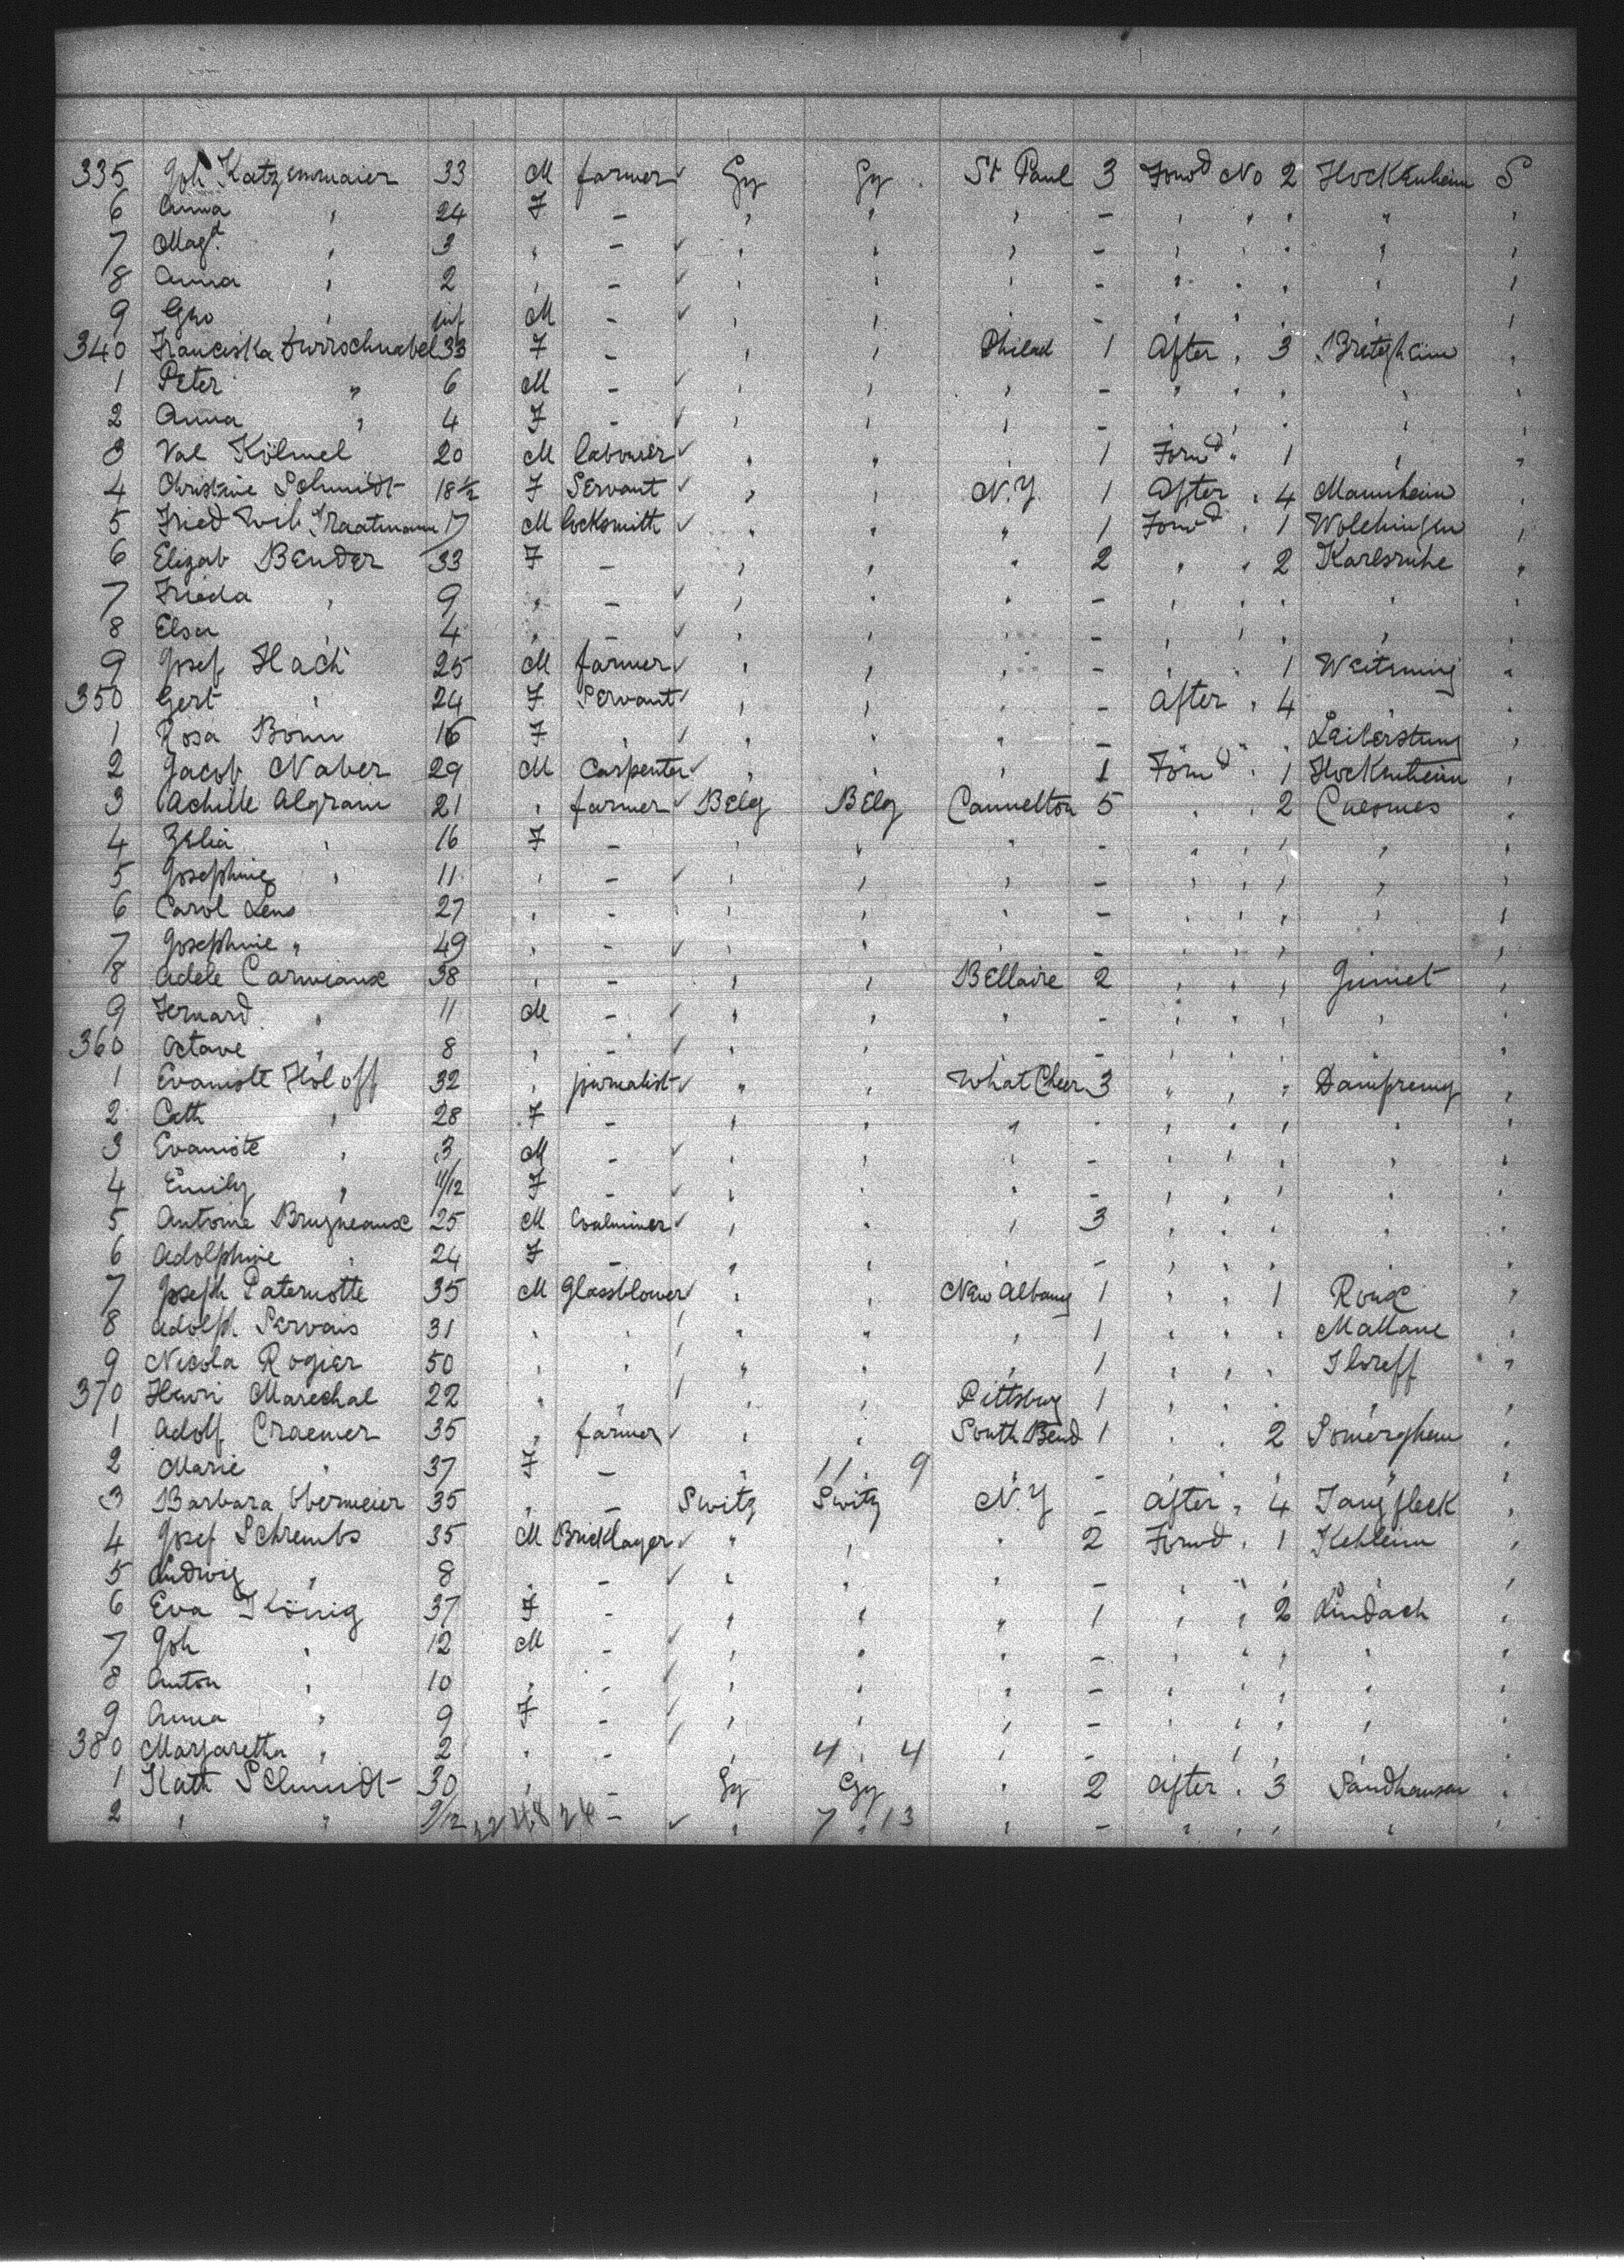 335 Joh Katzenmaier 33 M farmer Gy Gy St Paul 3 Forwd No 2 Hockenheim S
6 Anna " 24 F - " " " - " " " " "
7 Magd " 3 " - " " " - " " " " "
8 Anna " 2 " - " " " - " " " " "
9 " inf M - " " " - " " " " "
340 Franciska 33 F - " " Philad 1 After " 3 "
1 Peter " 6 M - " " " - " " " " "
2 Anna " 4 F - " " " - " " " " "
3 Val Kölmel 20 M labourer " " " 1 Forwd " 1 " "
4 Christine Schmidt 18 1/2 F Servant " " N.Y. 1 After " 4 Mannheim "
5 Fried Wilh 17 M locksmith " " " 1 Forwd " 1 "
6 Elizab Bender 33 F - " " " 2 " " 2 Karlsruhe "
7 Frieda " 9 " - " " " - " " " " "
8 Elsa " 4 " - " " " - " " " " "
9 Josef Hach 25 M farmer " " " - " " 1 "
350 Gert " 24 F Servant " " " - After " 4 " "
1 Rosa Bonn 16 F " " " " - " " " Leiberstung "
2 Jacob Naber 29 M Carpenter " " " 1 Forwd " 1 Hockenheim "
3 Achille Algrain 21 " farmer Belg Belg Cannelton 5 " " 2 Cuesmes "
4 Zelia " 16 F - " " " - " " " " "
5 Josephine " 11 " - " " " - " " " " "
6 Carol Lens 27 " - " " " - " " " " "
7 Josephine " 49 " - " " " - " " " " "
8 Adele Carniaux 38 " - " " Bellaire 2 " " " Jumet "
9 Fernard " 11 M - " " " - " " " " "
360 Octave " 8 " - " " " - " " " " "
1 Evariste Holoff 32 " journalist " " What Cheer 3 " " " Dampremy "
2 Cath " 28 F - " " " " " " " " "
3 Evariste " 3 M - " " " - " " " " "
4 Emily " 11/12 F - " " " - " " " " "
5 Antoine Brugneaux 25 M Coalminer " " " 3 " " " " "
6 Adolphine " 24 F - " " " - " " " " "
7 Joseph Paternotte 35 M Glassblower " " New Albany 1 " " 1 Roux "
8 Adolph Servais 31 " " " " " 1 " " " "
9 Nicola Rogier 50 " " " " " 1 " " " Floreff "
370 Henri Marechal 22 " " " " Pittsburg 1 " " " " "
1 Adolf Craemer 35 " farmer " " South Bend 1 " " 2 Somerghem "
2 Marie " 37 F - " 11 . 9 " - " " " " "
3 Barbara Obermeier 35 " - Switz Switz N.Y - After " 4 "
4 Josef Schrembs 35 M Bricklayer " " " 2 Forwd " 1 Kehleim "
5 Ludwig " 8 " - " " " - " " " " "
6 Eva König 37 F - " " " 1 " " 2 Lindach "
7 Joh " 12 M - " " " - " " " " "
8 Anton " 10 " - " " " - " " " " "
9 Anna " 9 F - " " " - " " " " "
380 Margaretha " 2 " - " 4 . 4 " - " " " " "
1 Kath Schmidt 30 " - Gy Gy " 2 After " 3 Sandhausen "
2 " " 9/12 - " 7 . 13 " - " " " " "